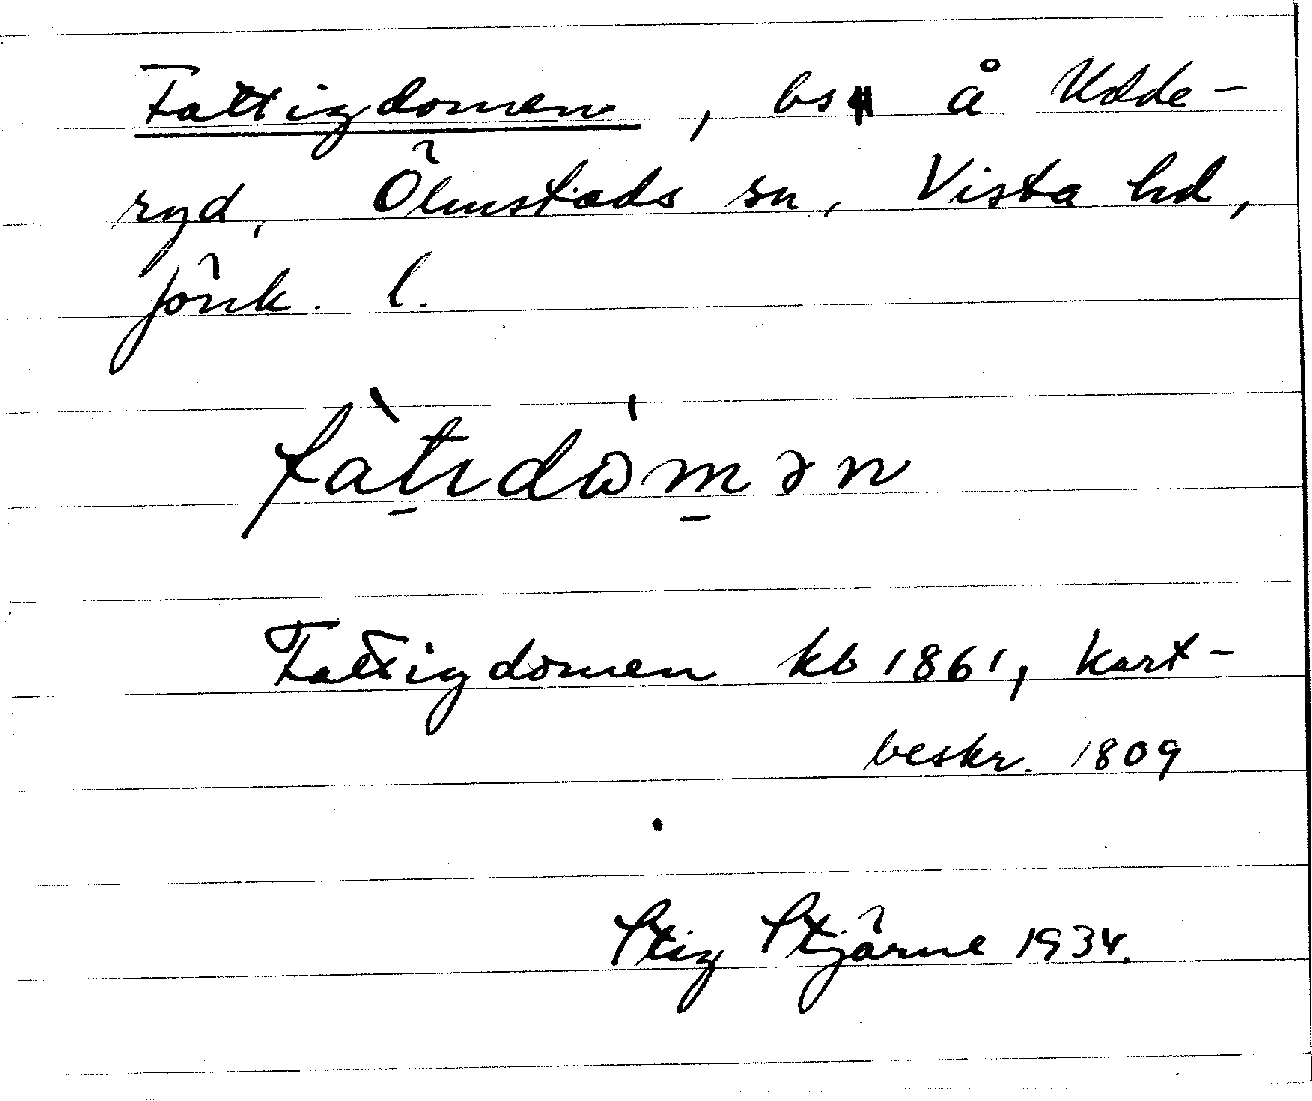 Fattigdomen, bs å Udde-
ryd, Ölmstads sn, Vista hd,
Jönk. l.
fàtıdòmən
Fattigdomen kb 1861, kart-
beskr. 1809
Stig Stjärne 1934.